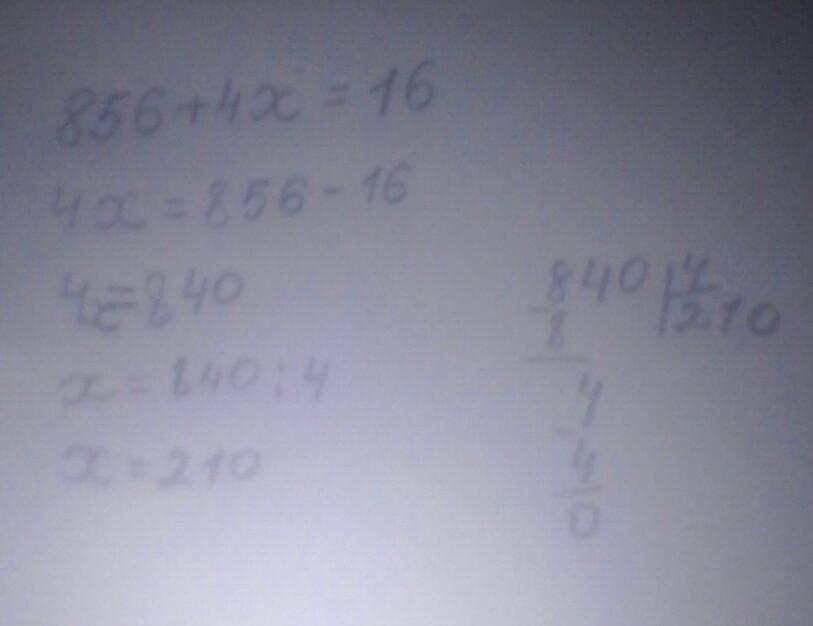 856+4x=16
4x=856-16
4x=840
x=840:4
x=210
840|4
-8 210
4
-4
0